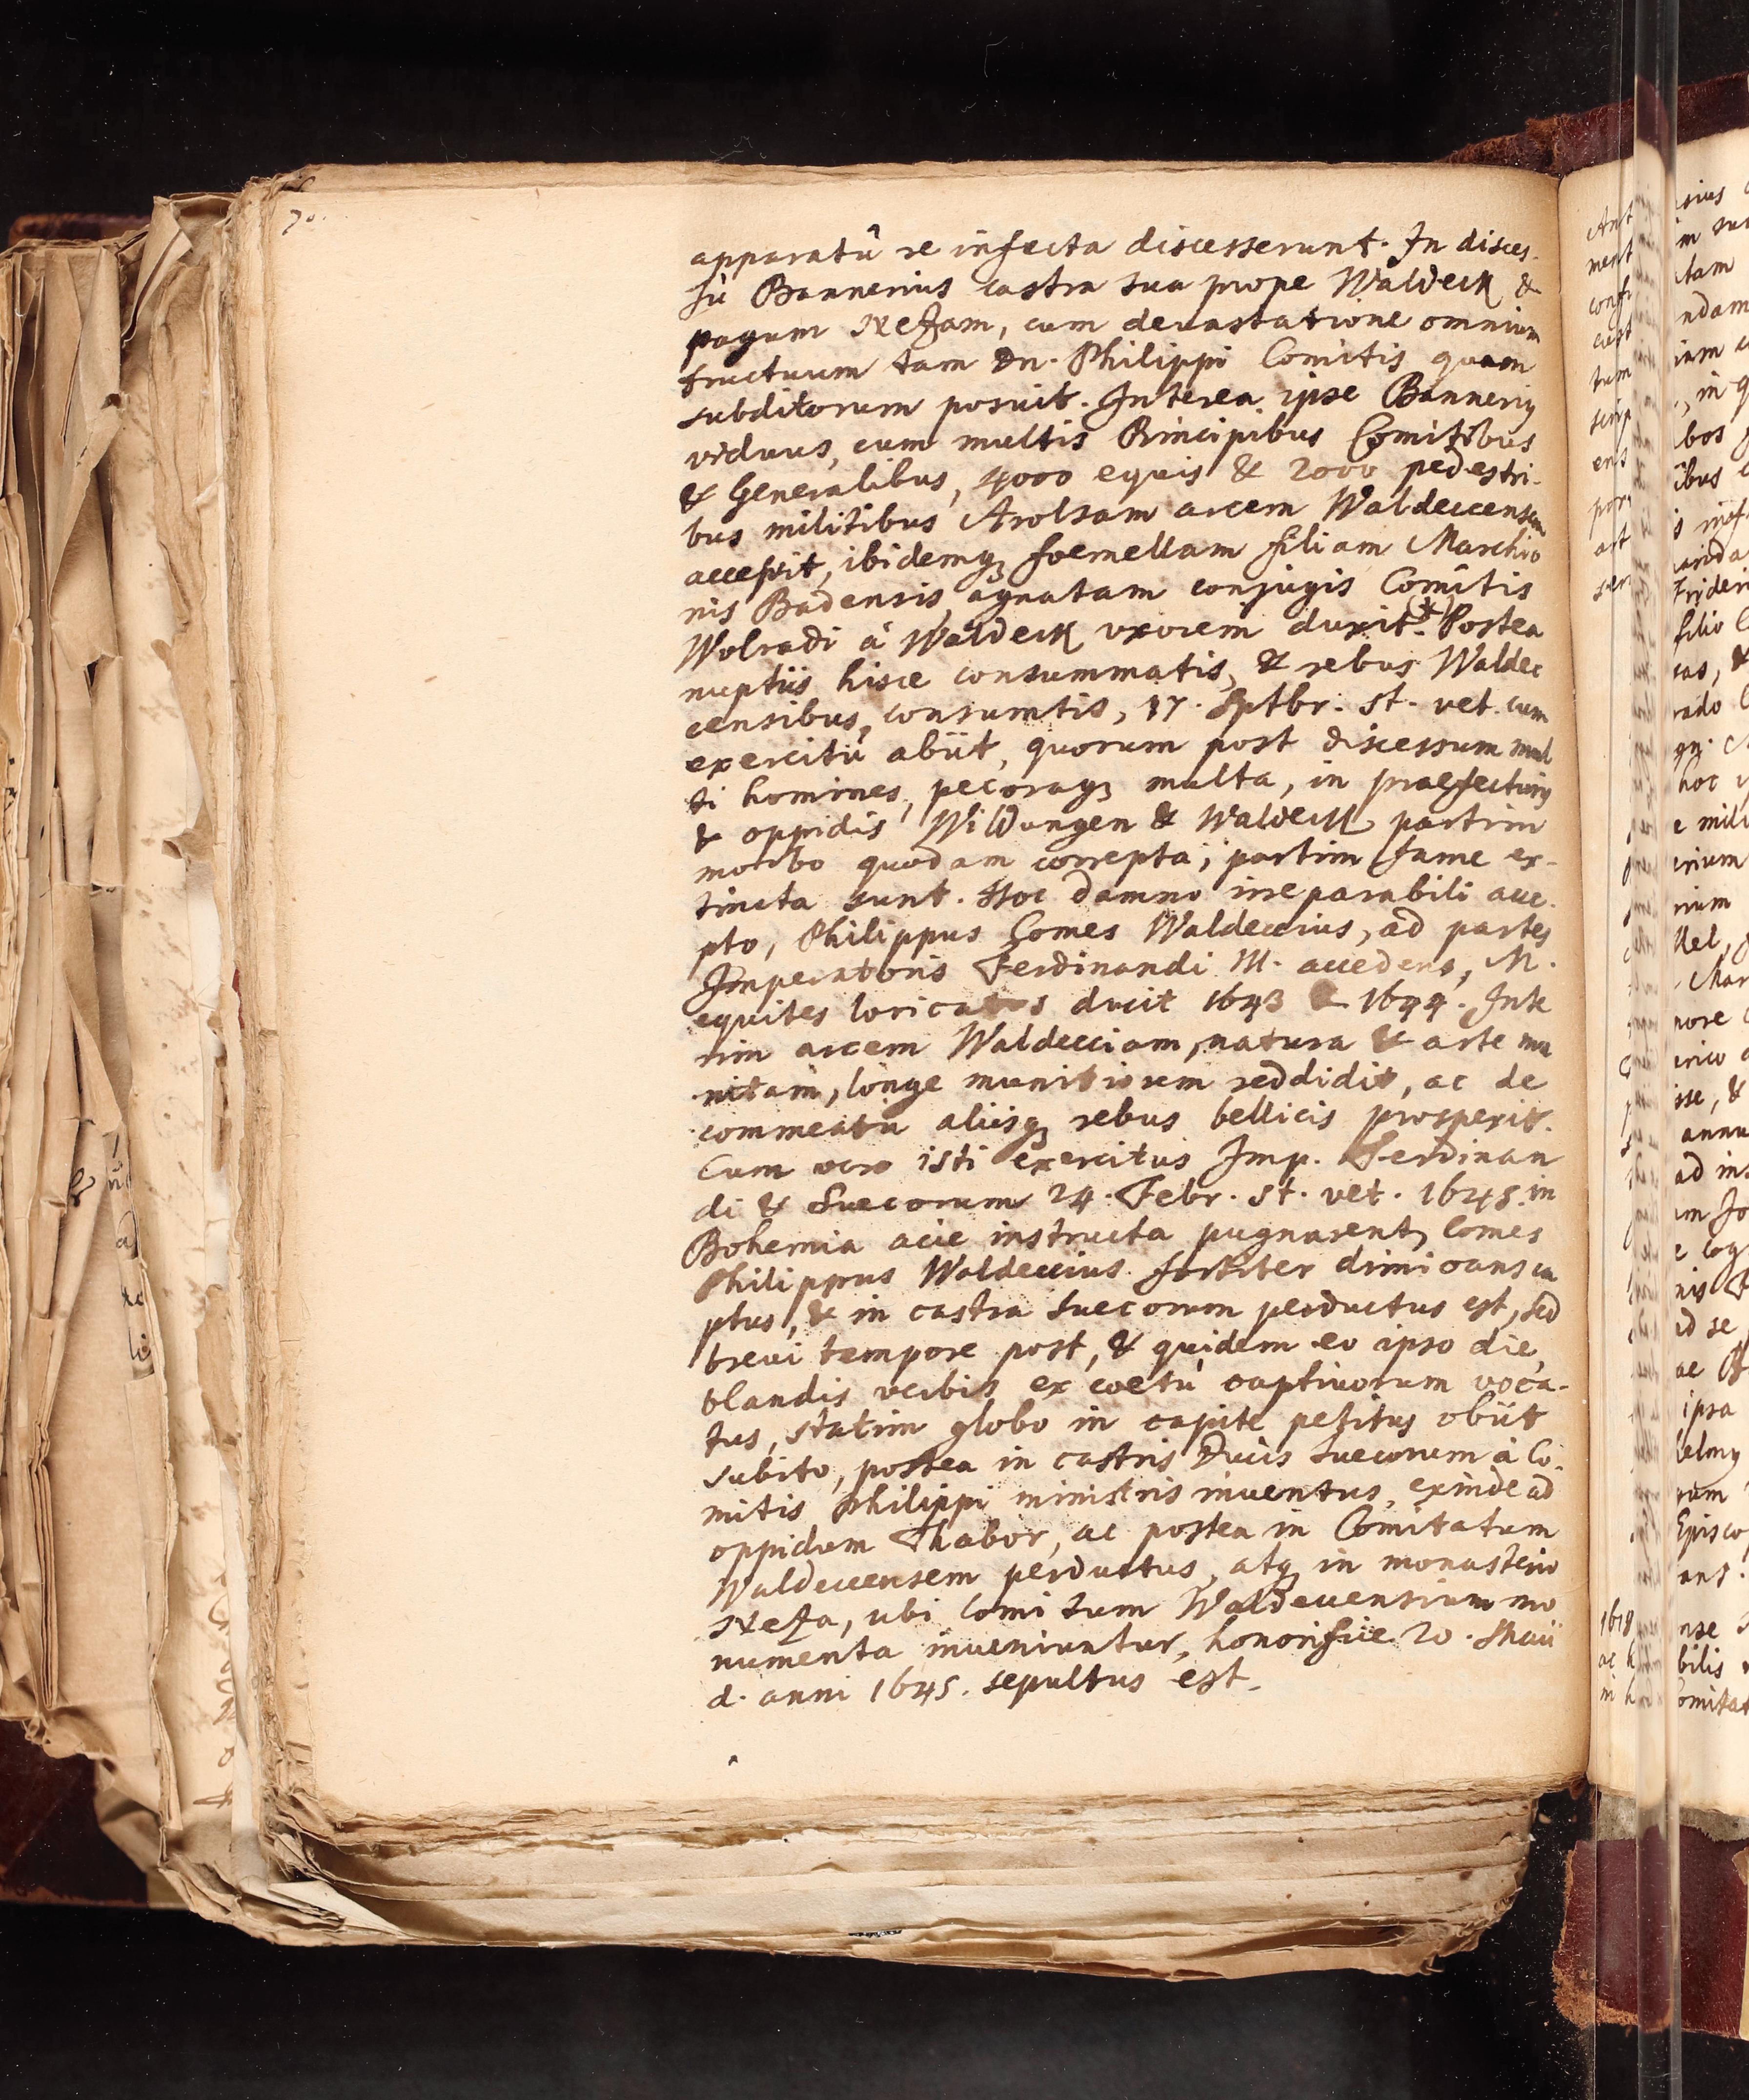 70.
apparatû re infecta discesserunt. In disces-
sù Bannerius castra sua prope Waldeck &
pagum Nezam, cum devastatione omnium
fructuum tam Dn. Philippi Comitis quam
subditorum posuit. Interea ipse Bannerig
viduus, cum multis Principibus Comitibus
& Generalibus, 4000 equis & 2000 pedestri-
bus militibus Arolsam arcem Waldeccensem
accessit, ibidemq foemellam filiam Marchio
nis Badensis, agnatam conjugis Comitis
Wolradi à Waldeck uxorem duxit. (*) Postea
nuptiis hisce consummatis, & rebus Waldec
censibus, consumtis, 17. Sptbr. st. vet. cum
exercitû abiit, quorum post discessum mul
ti homines, pecoraq multa, in praefecturis
& oppidis Wildungen & Waldeck partim
morbo quodam correpta, partim fame ex-
tincta sunt. Hoc damno irreparabili acce-
pto, Philippus Comes Waldeccius, ad partes
Imperatoris Ferdinandi III. accedens, M.
equites loricatos ducit 1643 & 1644. Inte
rim arcem Waldecciam, natura & arte mu
nitam, longe munitiorem reddidit, ac de
commeatu aliisq rebus bellicis prospexit.
Cum vero isti exercitus Imp. Ferdinan
di & Suecorum 24. Febr. st. vet. 1645. in
Bohemia acie instructa pugnarent, Comes
Philippus Waldeccius fortiter dimicans ca
ptus, & in castra Suecorum perductus est, sed
brevi tempore post, & quidem eo ipso die,
blandis verbis ex coetù captivorum voca-
tus, statim globo in capite petitus obiit
subito, postea in castris Ducis Suecorum à Co-
mitis Philippi ministris inventus, exinde ad
oppidum Thabor, ac postea in Comitatum
Waldeccensem perductus, atq in monasterio
Neza, ubi Comitum Waldeccensium mo
numenta inveniuntur, honorifice 20. Maii
d. anni 1645. sepultus est.